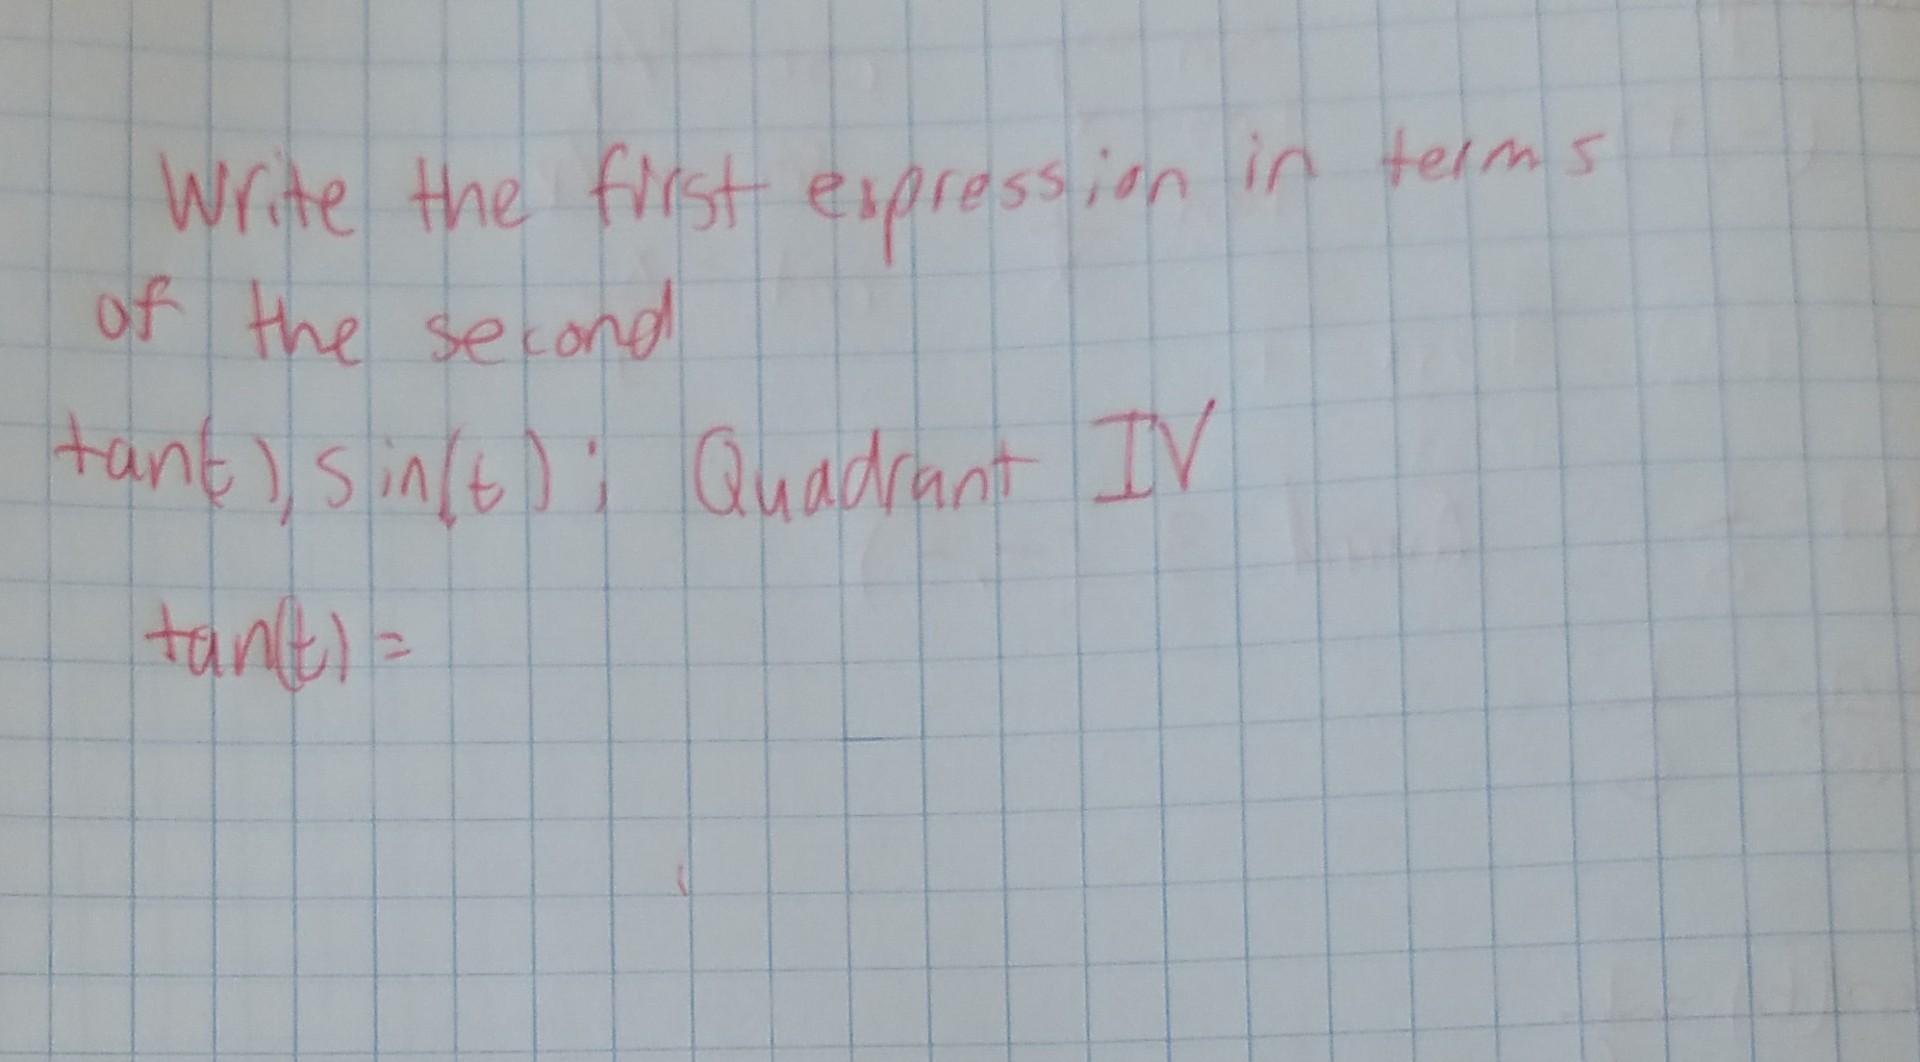 Write the first expression in terms
of the second
tan(t), sin(t); Quadrant IV
tan(t) =